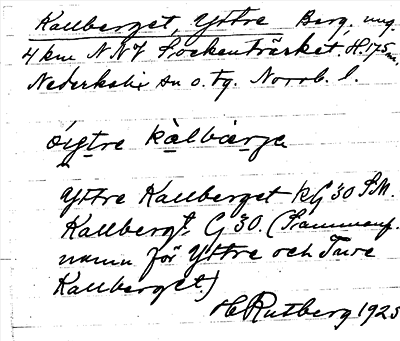 Kallberget, Yttre Berg, ung.
4 km NNV Sockenträsket. H. 175 m.
Nederkalix sn o. tg. Norrb. l.
Yttre Kallberget kG 30 S.M.
Kallbergt. G 30. (Sammanf.
namn för Yttre och Inre
Kallberget.)
H Rutberg 1925